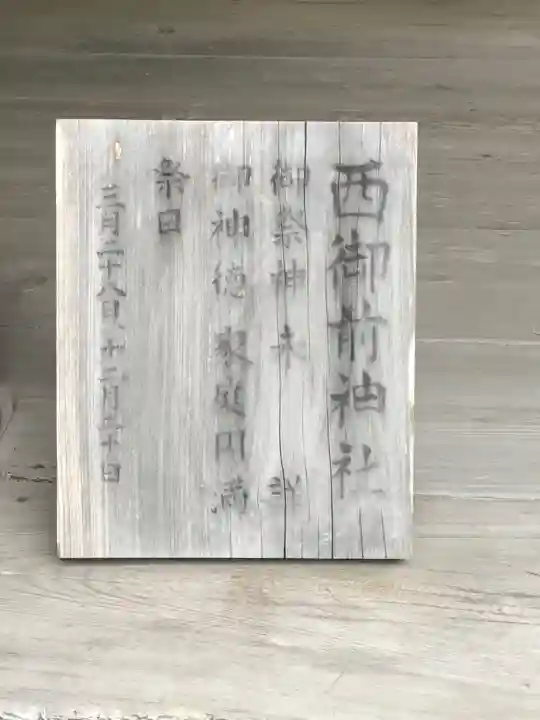 西御前神社
御祭神未詳
御神徳 家庭円満
祭日
三月二十八日、十二月二十日